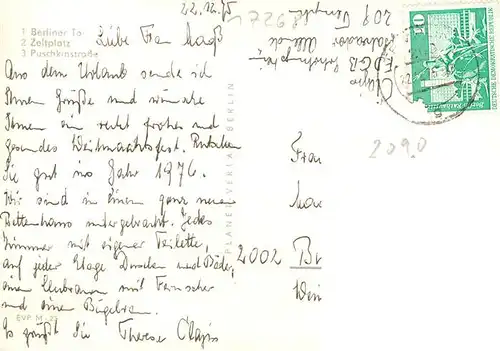 22.12.75
1 Berliner Tor
2 Zeltplatz
3 Puschkinstraße
Liebe Frau Maaß
Aus dem Urlaub sende ich
Ihnen Grüße und wünsche
Ihnen ein recht frohes und
gesundes Weihnachtsfest. Rutschen
Sie gut ins Jahr 1976.
Wir sind in einem ganz neuen
Bettenhaus untergebracht. Jedes
Zimmer mit eigener Toilette,
auf jeder Etage Duschen und Bäder,
eine Clubraum mit Fernseher
und einen Bügelraum.
Es grüßt Sie Therese
EVP M
PLANET-VERLAG BERLIN
209 Templin
Salvador Allende
FDGB
10
DEUTSCHE DEMOKRATISCHE REPUBLIK
2090
Frau
2002